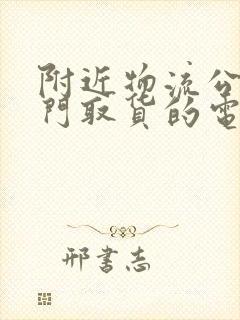 附近物流公
門取貨的電
邢書志